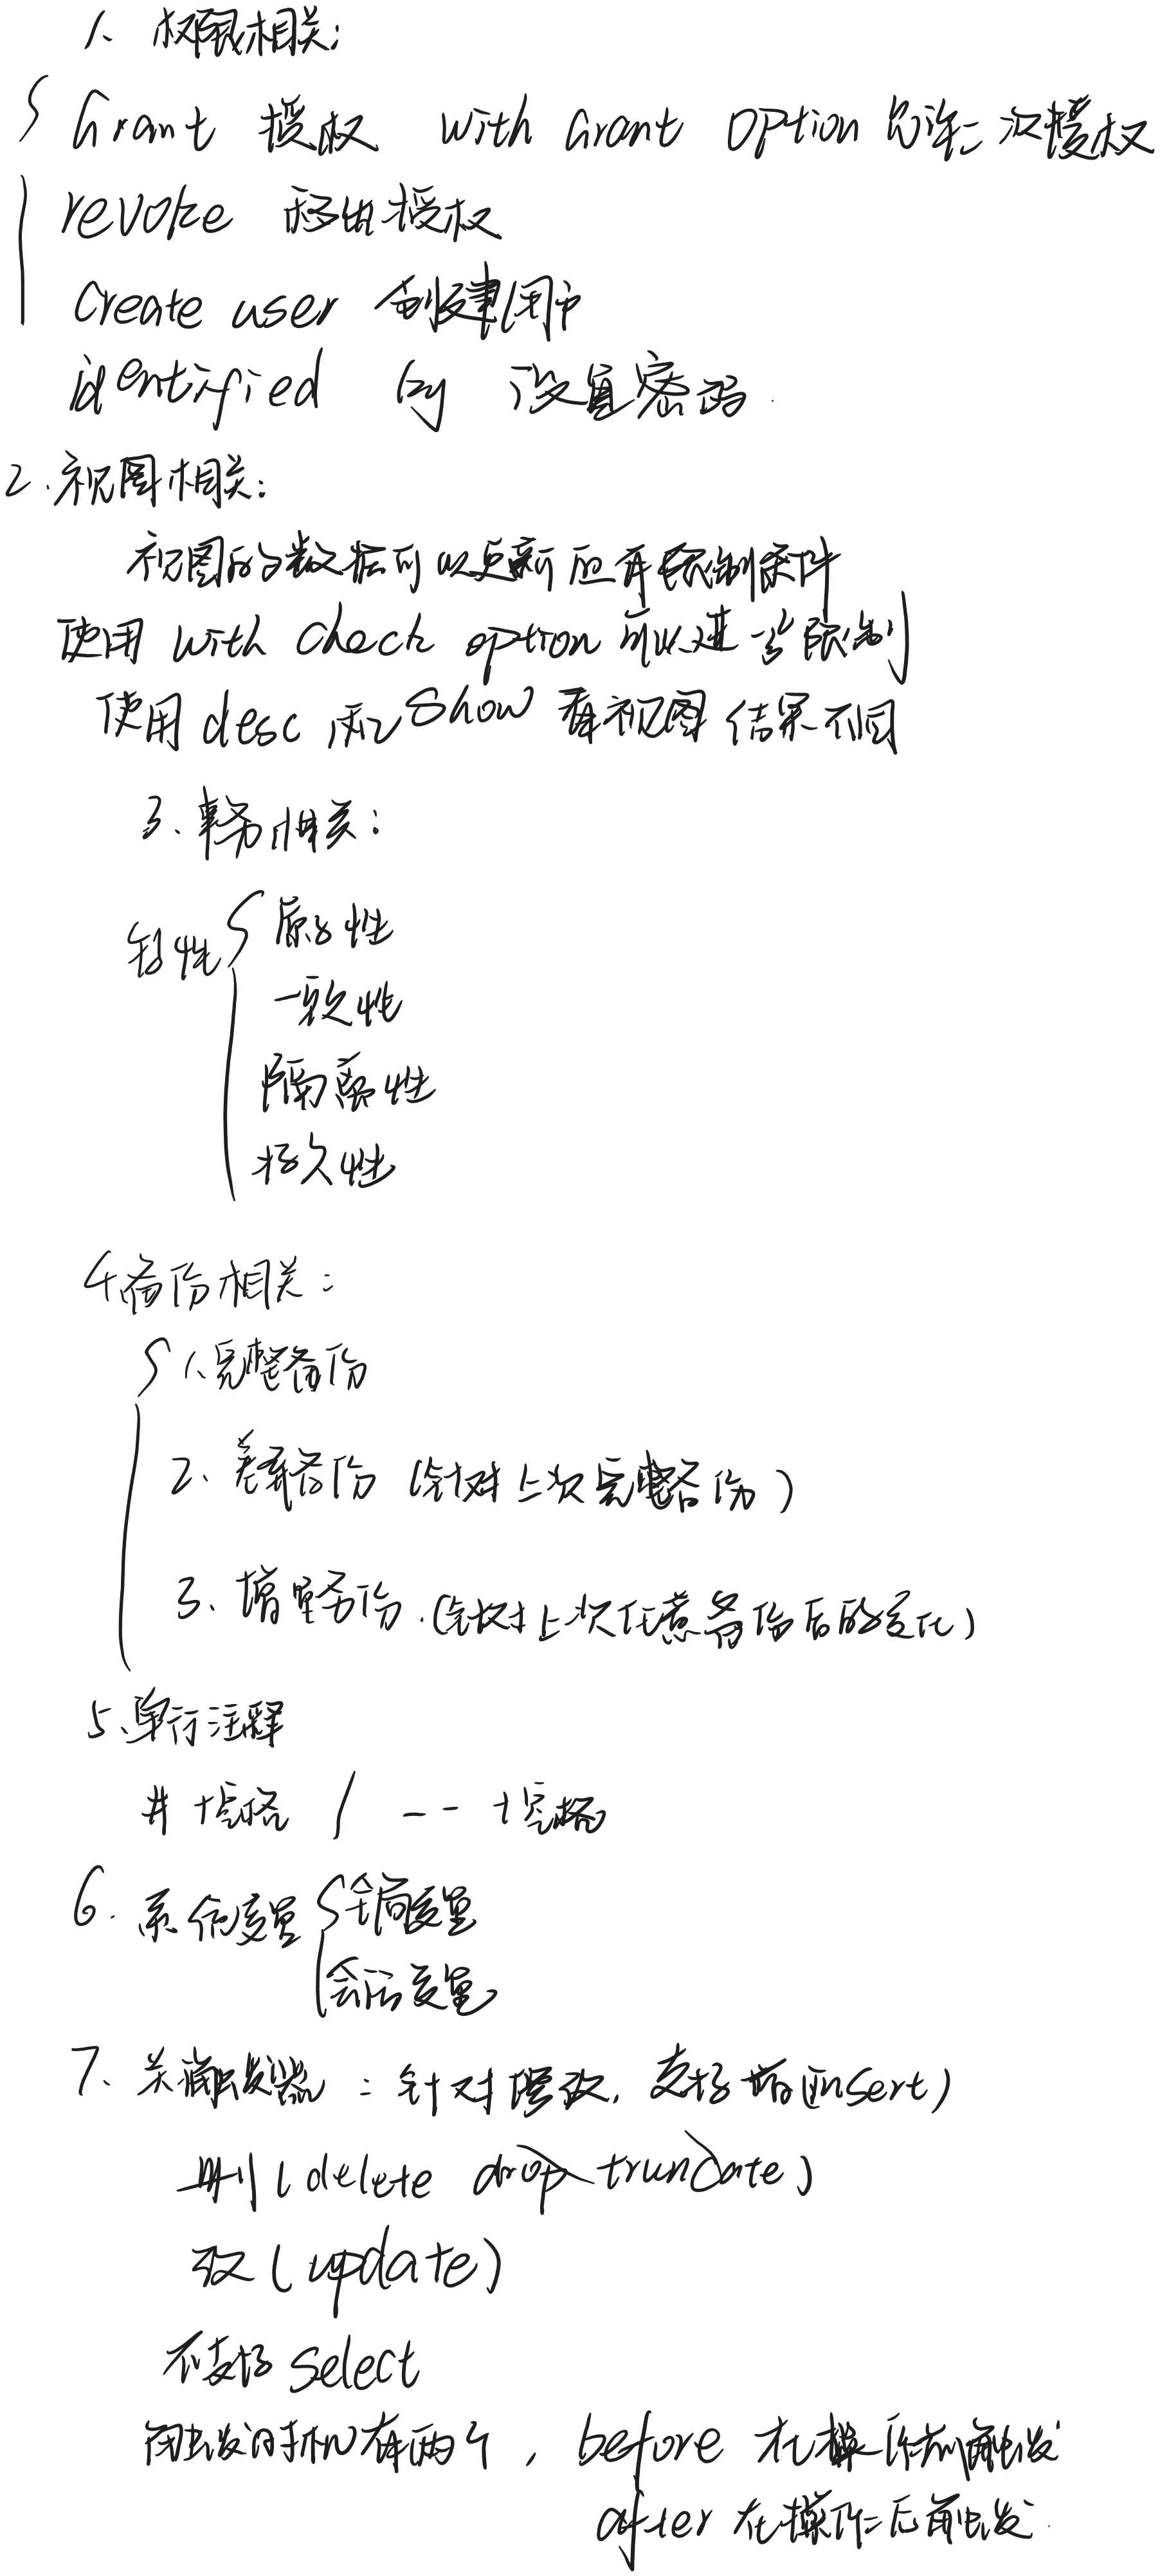 1、权限相关:
Grant 授权 with Grant Option 允许二次授权
revoke 移出授权
Create user 创建用户
identified by 设置密码
2.视图相关:
视图的数据可以更新 但有限制条件
使用 with check option 可以进一步限制
使用 desc 和 show 看视图 结果不同
3、事务相关:
特性 原子性
一致性
隔离性
持久性
4备份相关:
1、完整备份
2、差异备份 (针对上次完整备份)
3、增量备份.(针对上次任意备份后的变化)
5、单行注释
# +空格 / -- +空格
6. 系统变量 全局变量
会话变量
7、关于触发器:针对增改, 支持增(insert)
删(delete drop truncate)
改(update)
不支持 select
触发时机有两个, before 在操作前触发
after 在操作后触发